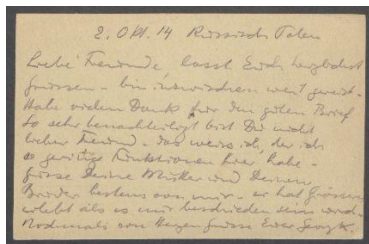 2. Okt. 14 Russisch Polen
Liebe Freunde, lasst Euch herzlichst
grüssen - bin inzwischen weit gereist.
Habe vielen Dank für den guten Brief
So sehr benachteiligt bist Du nicht
lieber Freund - das weiss ich, der ich
so geistige Funktionen hier habe -
grüsse Deine Mutter und Deinen
Bruder bestens von mir - er hat Grösseres
erlebt als es mir beschieden sein wird -
Nochmals von Herzen grüsst Euer Georg T.